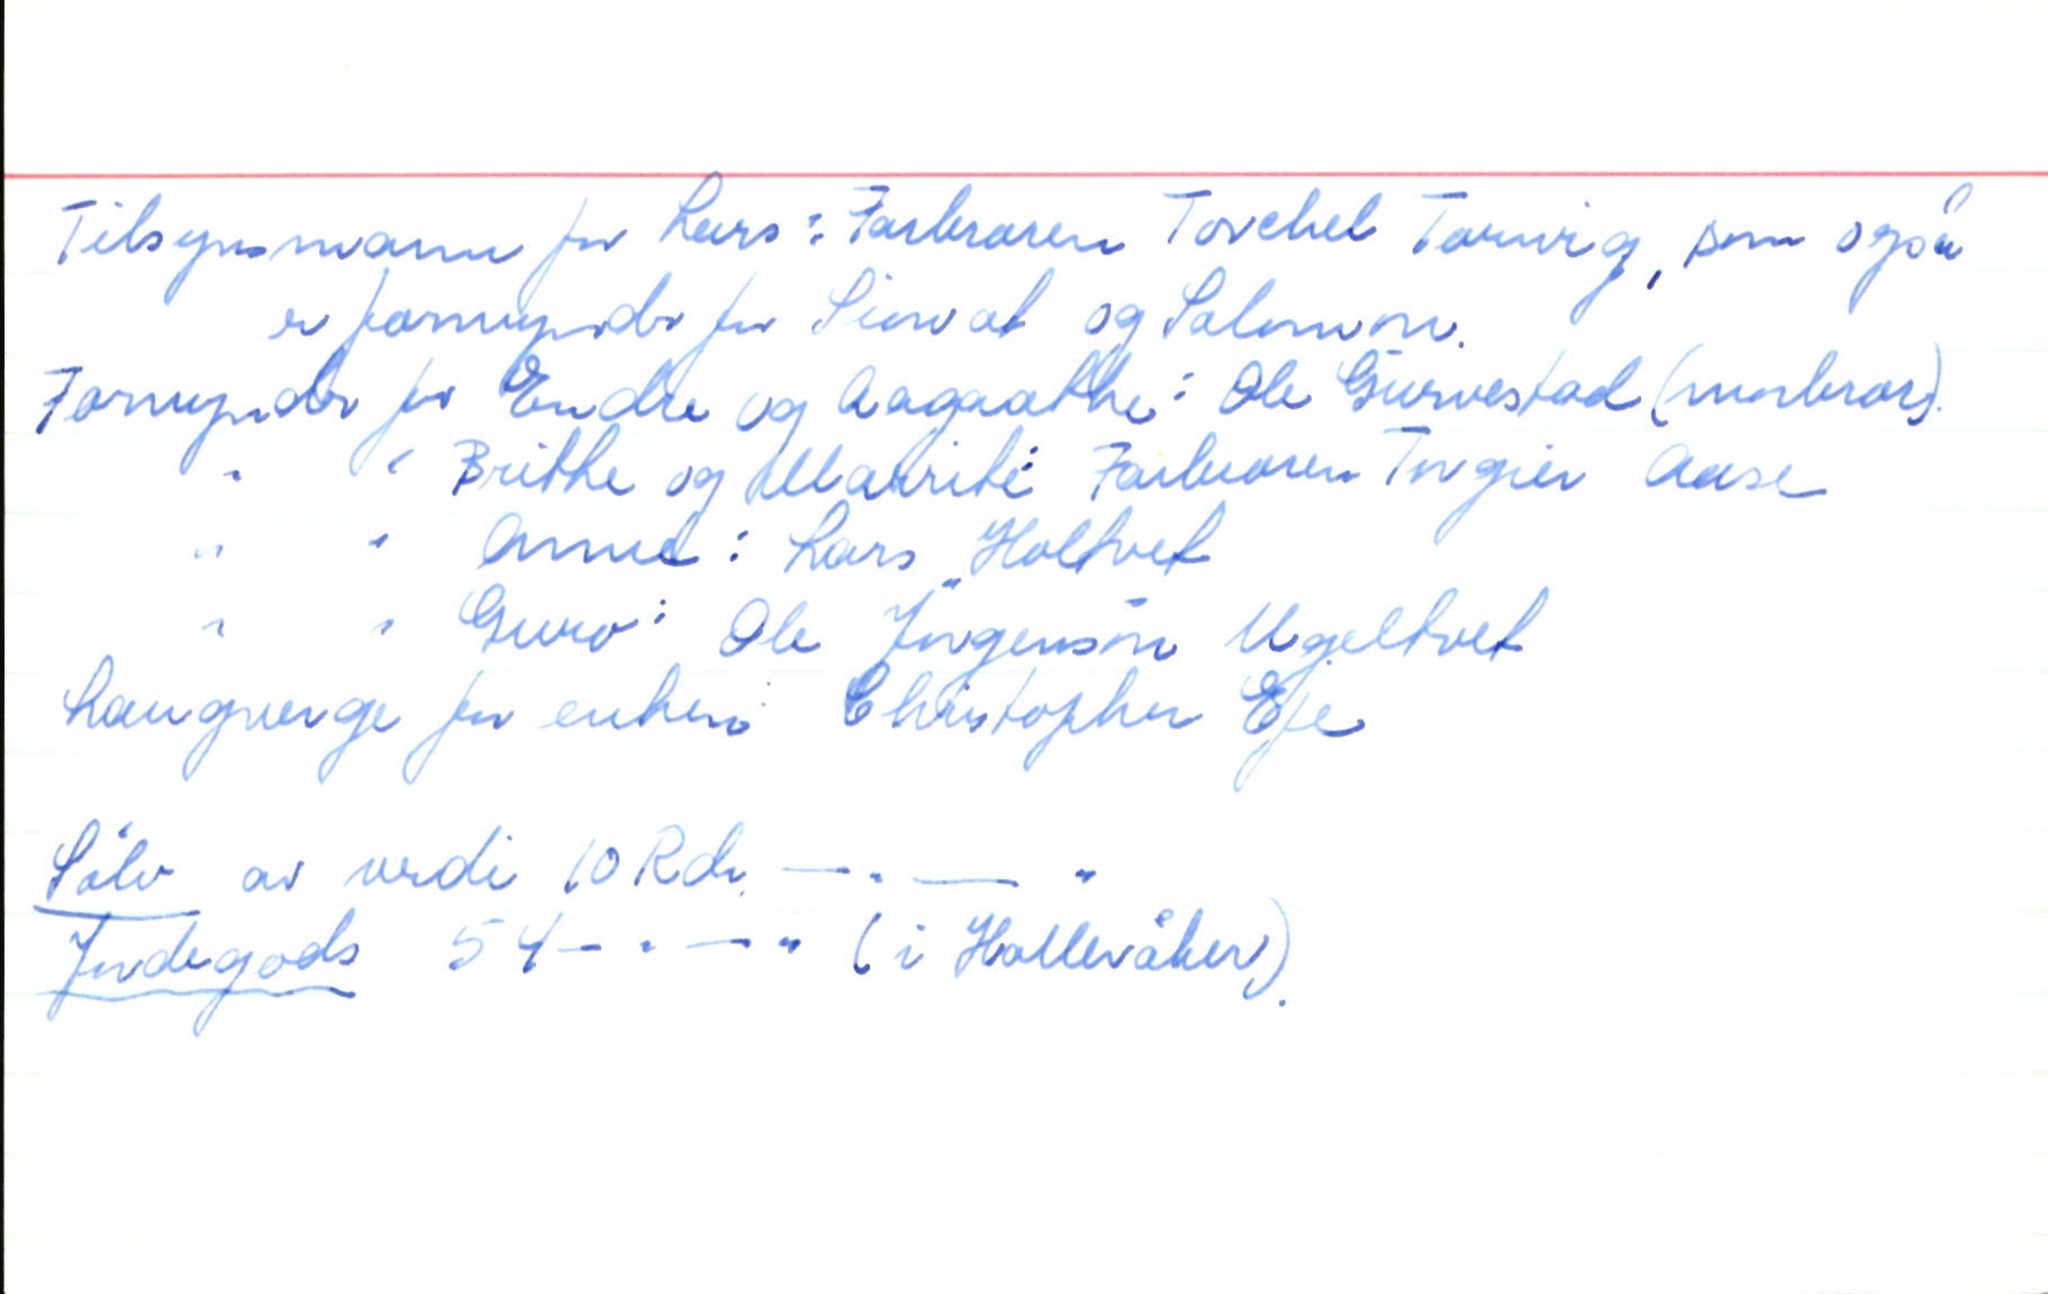 Tilsynsmann for Lars: Farbroren Torchel Tarvig, som også
er formynder for Siovat og Salomon.
Formynder for Endre og Aagaathe: Ole Gurvestad (morbror).
" " Brithe og Marrite: Farbroren Torgier Aase
" " Anne: Lars Holtvet
" " Guro: Ole Jørgensøn Ugeltvet
Laugverge for enken: Christopher Eje
Sølv av verdi 10 Rdr. — . — "
Jordegods 54 — . — " (i Hallevåker).